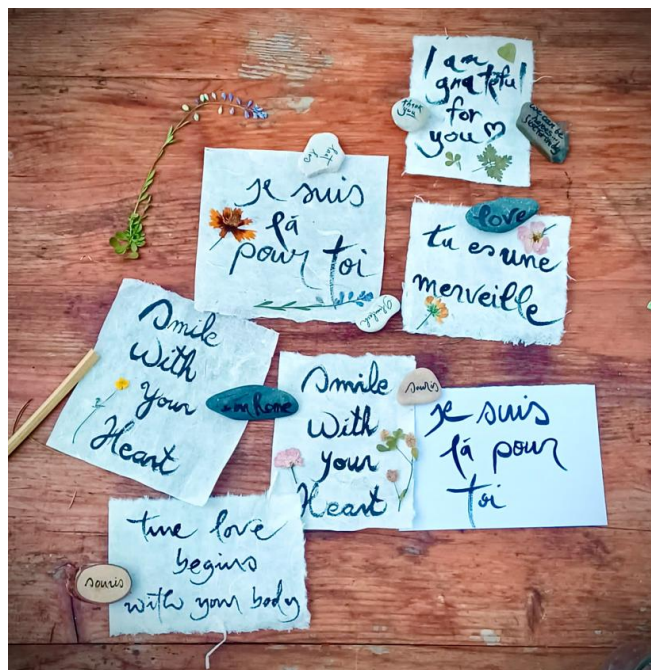 I am
grateful
for
you
thank
you
je suis
là
pour toi
love
tu es une
merveille
Smile
With
Your
Heart
Smile
With
your
Heart
souris
je suis
là pour
toi
true love
begins
with your body
souris